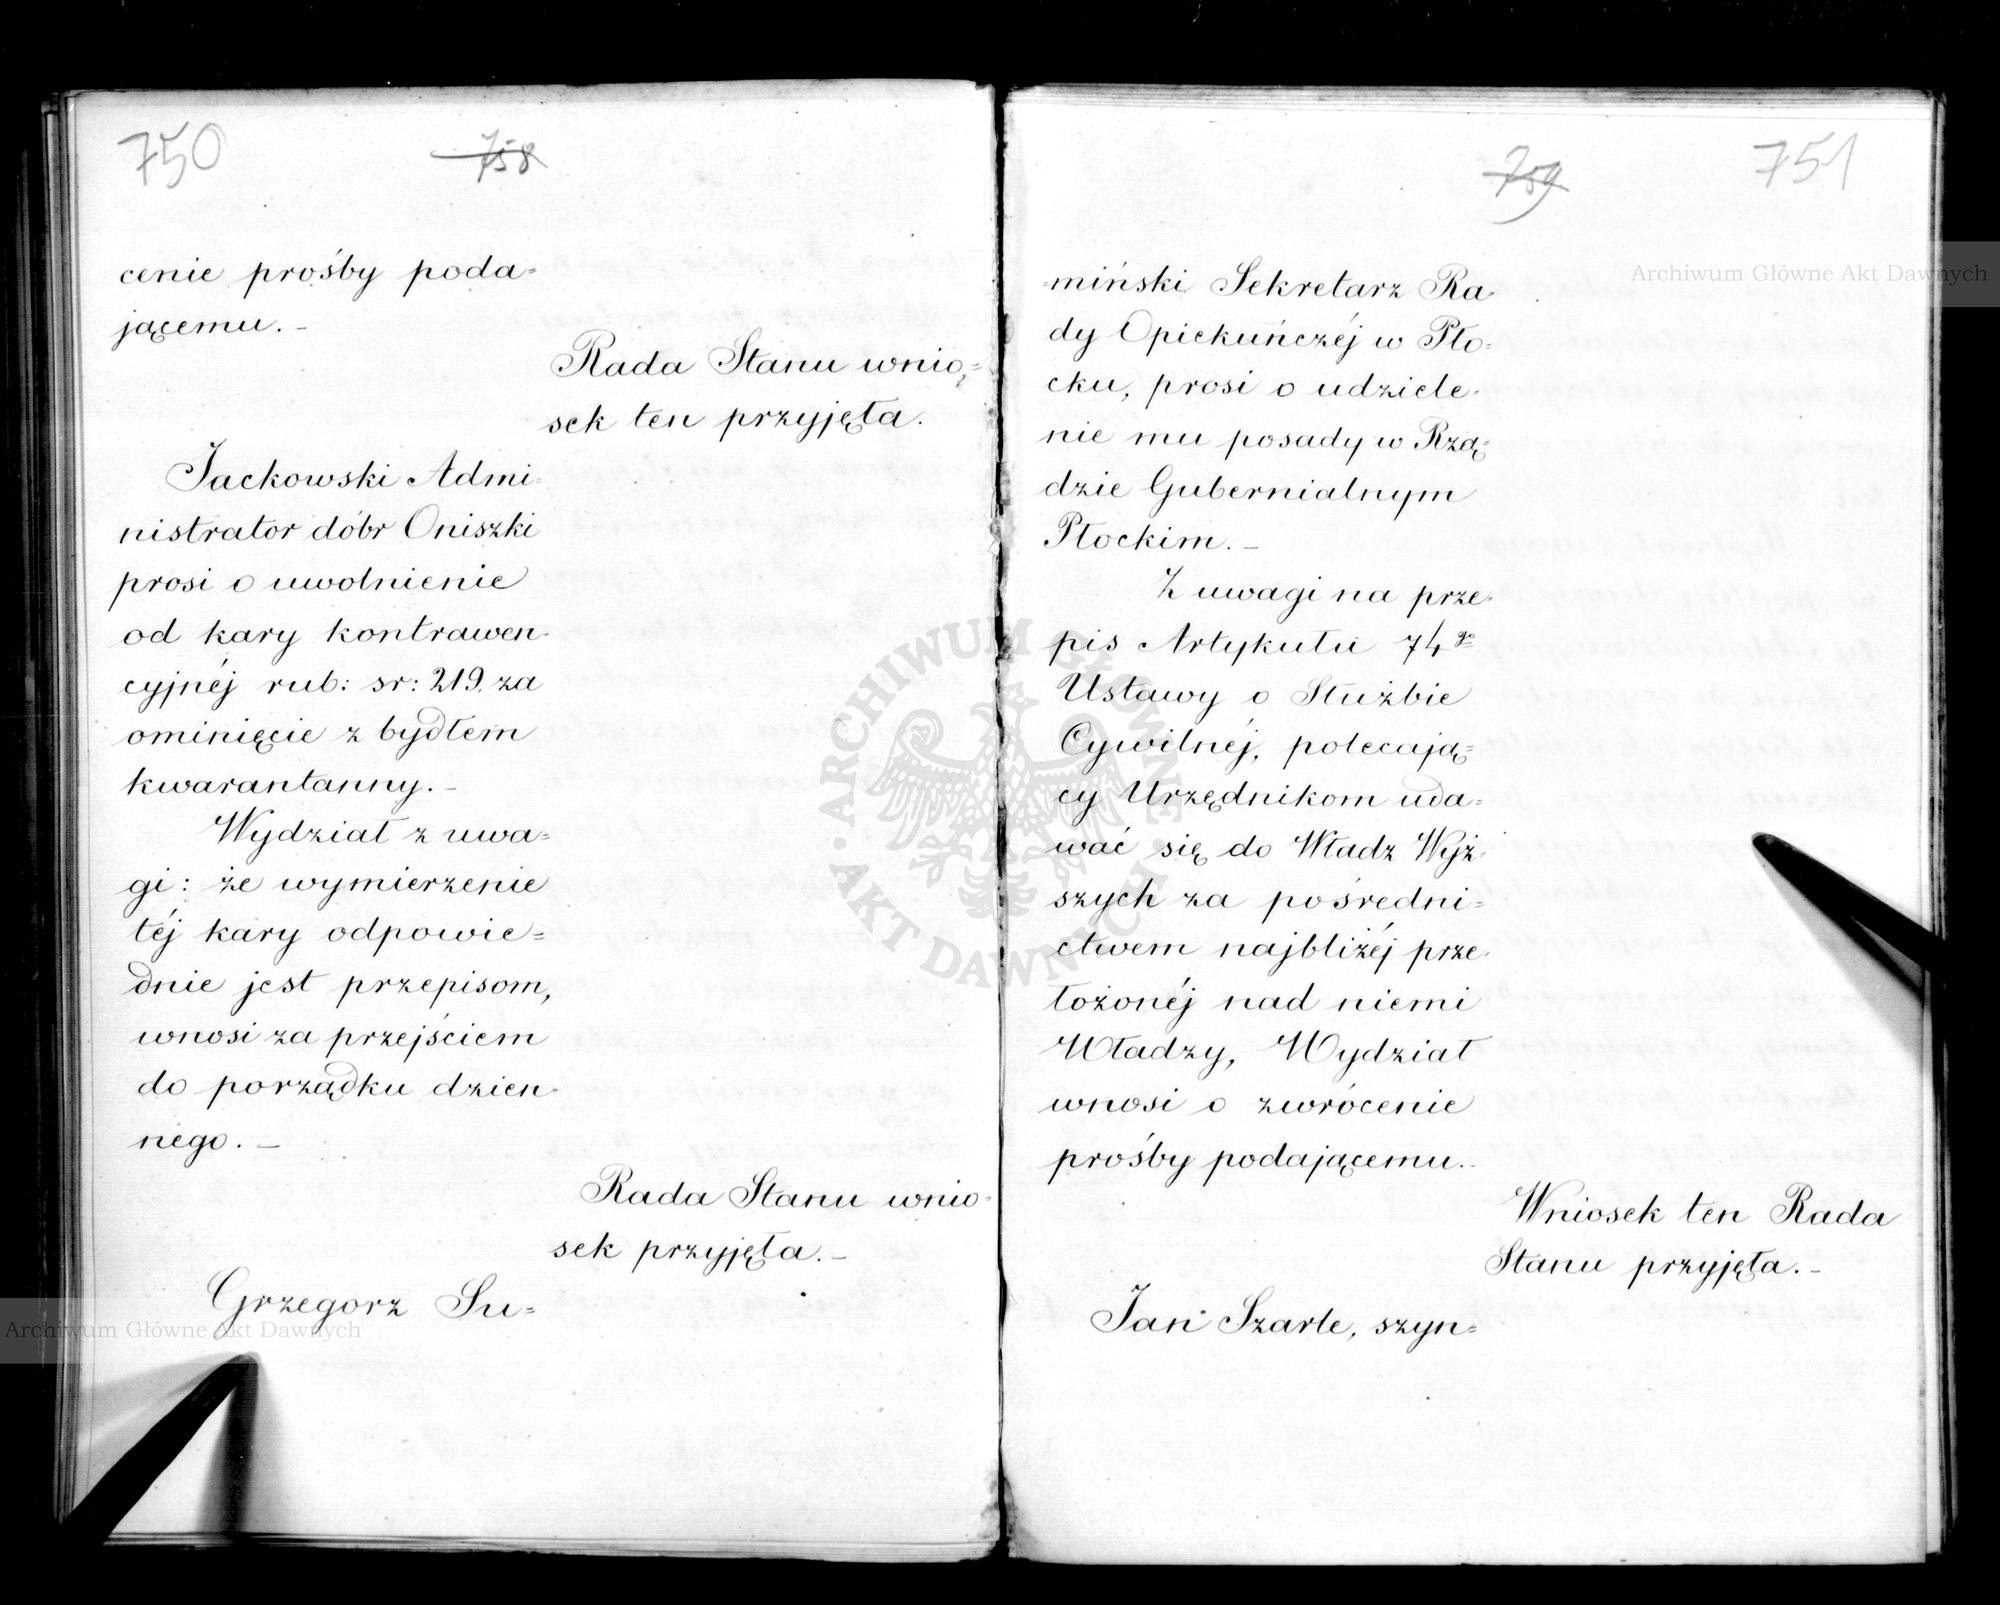 750
758
cenie prośby poda=
jącemu. –
Rada Stanu wnio=
sek ten przyjęła.
Jackowski Admi-
nistrator dóbr Oniszki
prosi o uwolnienie
od kary kontrawen-
cyjnéj rub: sr: 219. za
ominięcie z bydłem
kwarantanny. –
Wydział z uwa=
gi: że wymierzenie
téj kary odpowie=
dnie jest przepisom,
wnosi za przejściem
do porządku dzien-
nego. –
Rada Stanu wnio-
sek przyjęła. –
Grzegorz Su=
759
751
-miński Sekretarz Ra-
dy Opiekuńczéj w Pło-
cku, prosi o udziele-
nie mu posady w Rzą=
dzie Gubernialnym
Płockim. –
Z uwagi na prze-
pis Artykułu 74go
Ustawy o Służbie
Cywilnéj, polecają=
cy Urzędnikom uda=
wać się do Władz Wyż-
szych za pośredni=
ctwem najbliżéj prze-
łożonéj nad niemi
Władzy, Wydział
wnosi o zwrócenie
prośby podającemu..
Wniosek ten Rada
Stanu przyjęła. –
Jan Szarle, szyn=
Archiwum Główne Akt Dawnych
Archiwum Główne Akt Dawnych
ARCHIWUM GŁÓWNE AKT DAWNYCH